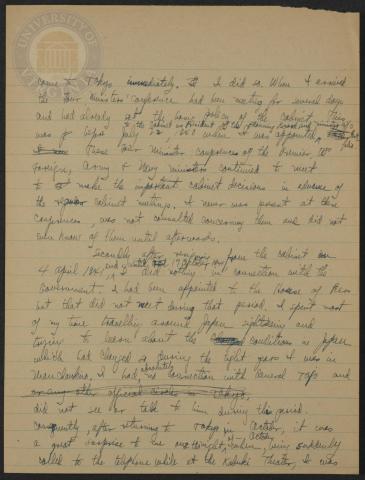 UNIVERSITY OF
come to Tokyo immediately. I did so. When I arrived
the Four Ministers' Conference had been meeting for several days
and had already set the basic policy of the cabinet. This
was before July 22, 1940 when I was appointed
to the cabinet as President of the Planning Board and
These Four Minister conferences of the Premier,
Foreign, Army & Navy ministers continued to meet
to make the important cabinet decisions in advance of
the regular cabinet meetings. I never was present at these
conferences, was not consulted concerning them and did not
even know of them until afterwards.
Secondly after from the cabinet on
4 April 1941, and until 17 October 1941 I did nothing in connection with the
Government. I had been appointed to the House of Peers
but that did not meet during that period. I spent most
of my time travelling around Japan sightseeing and
trying to learn about the conditions in Japan
which had changed so during the eight years I was in
Manchuria. I had absolutely no connection with General Tojo and
or any other official circles in Tokyo,
did not see or talk to him during this period.
Consequently, after returning to Tokyo in October, it was
a great surprise to me one night, in October, when, being suddenly
called to the telephone while at the Kabuki Theater, I was